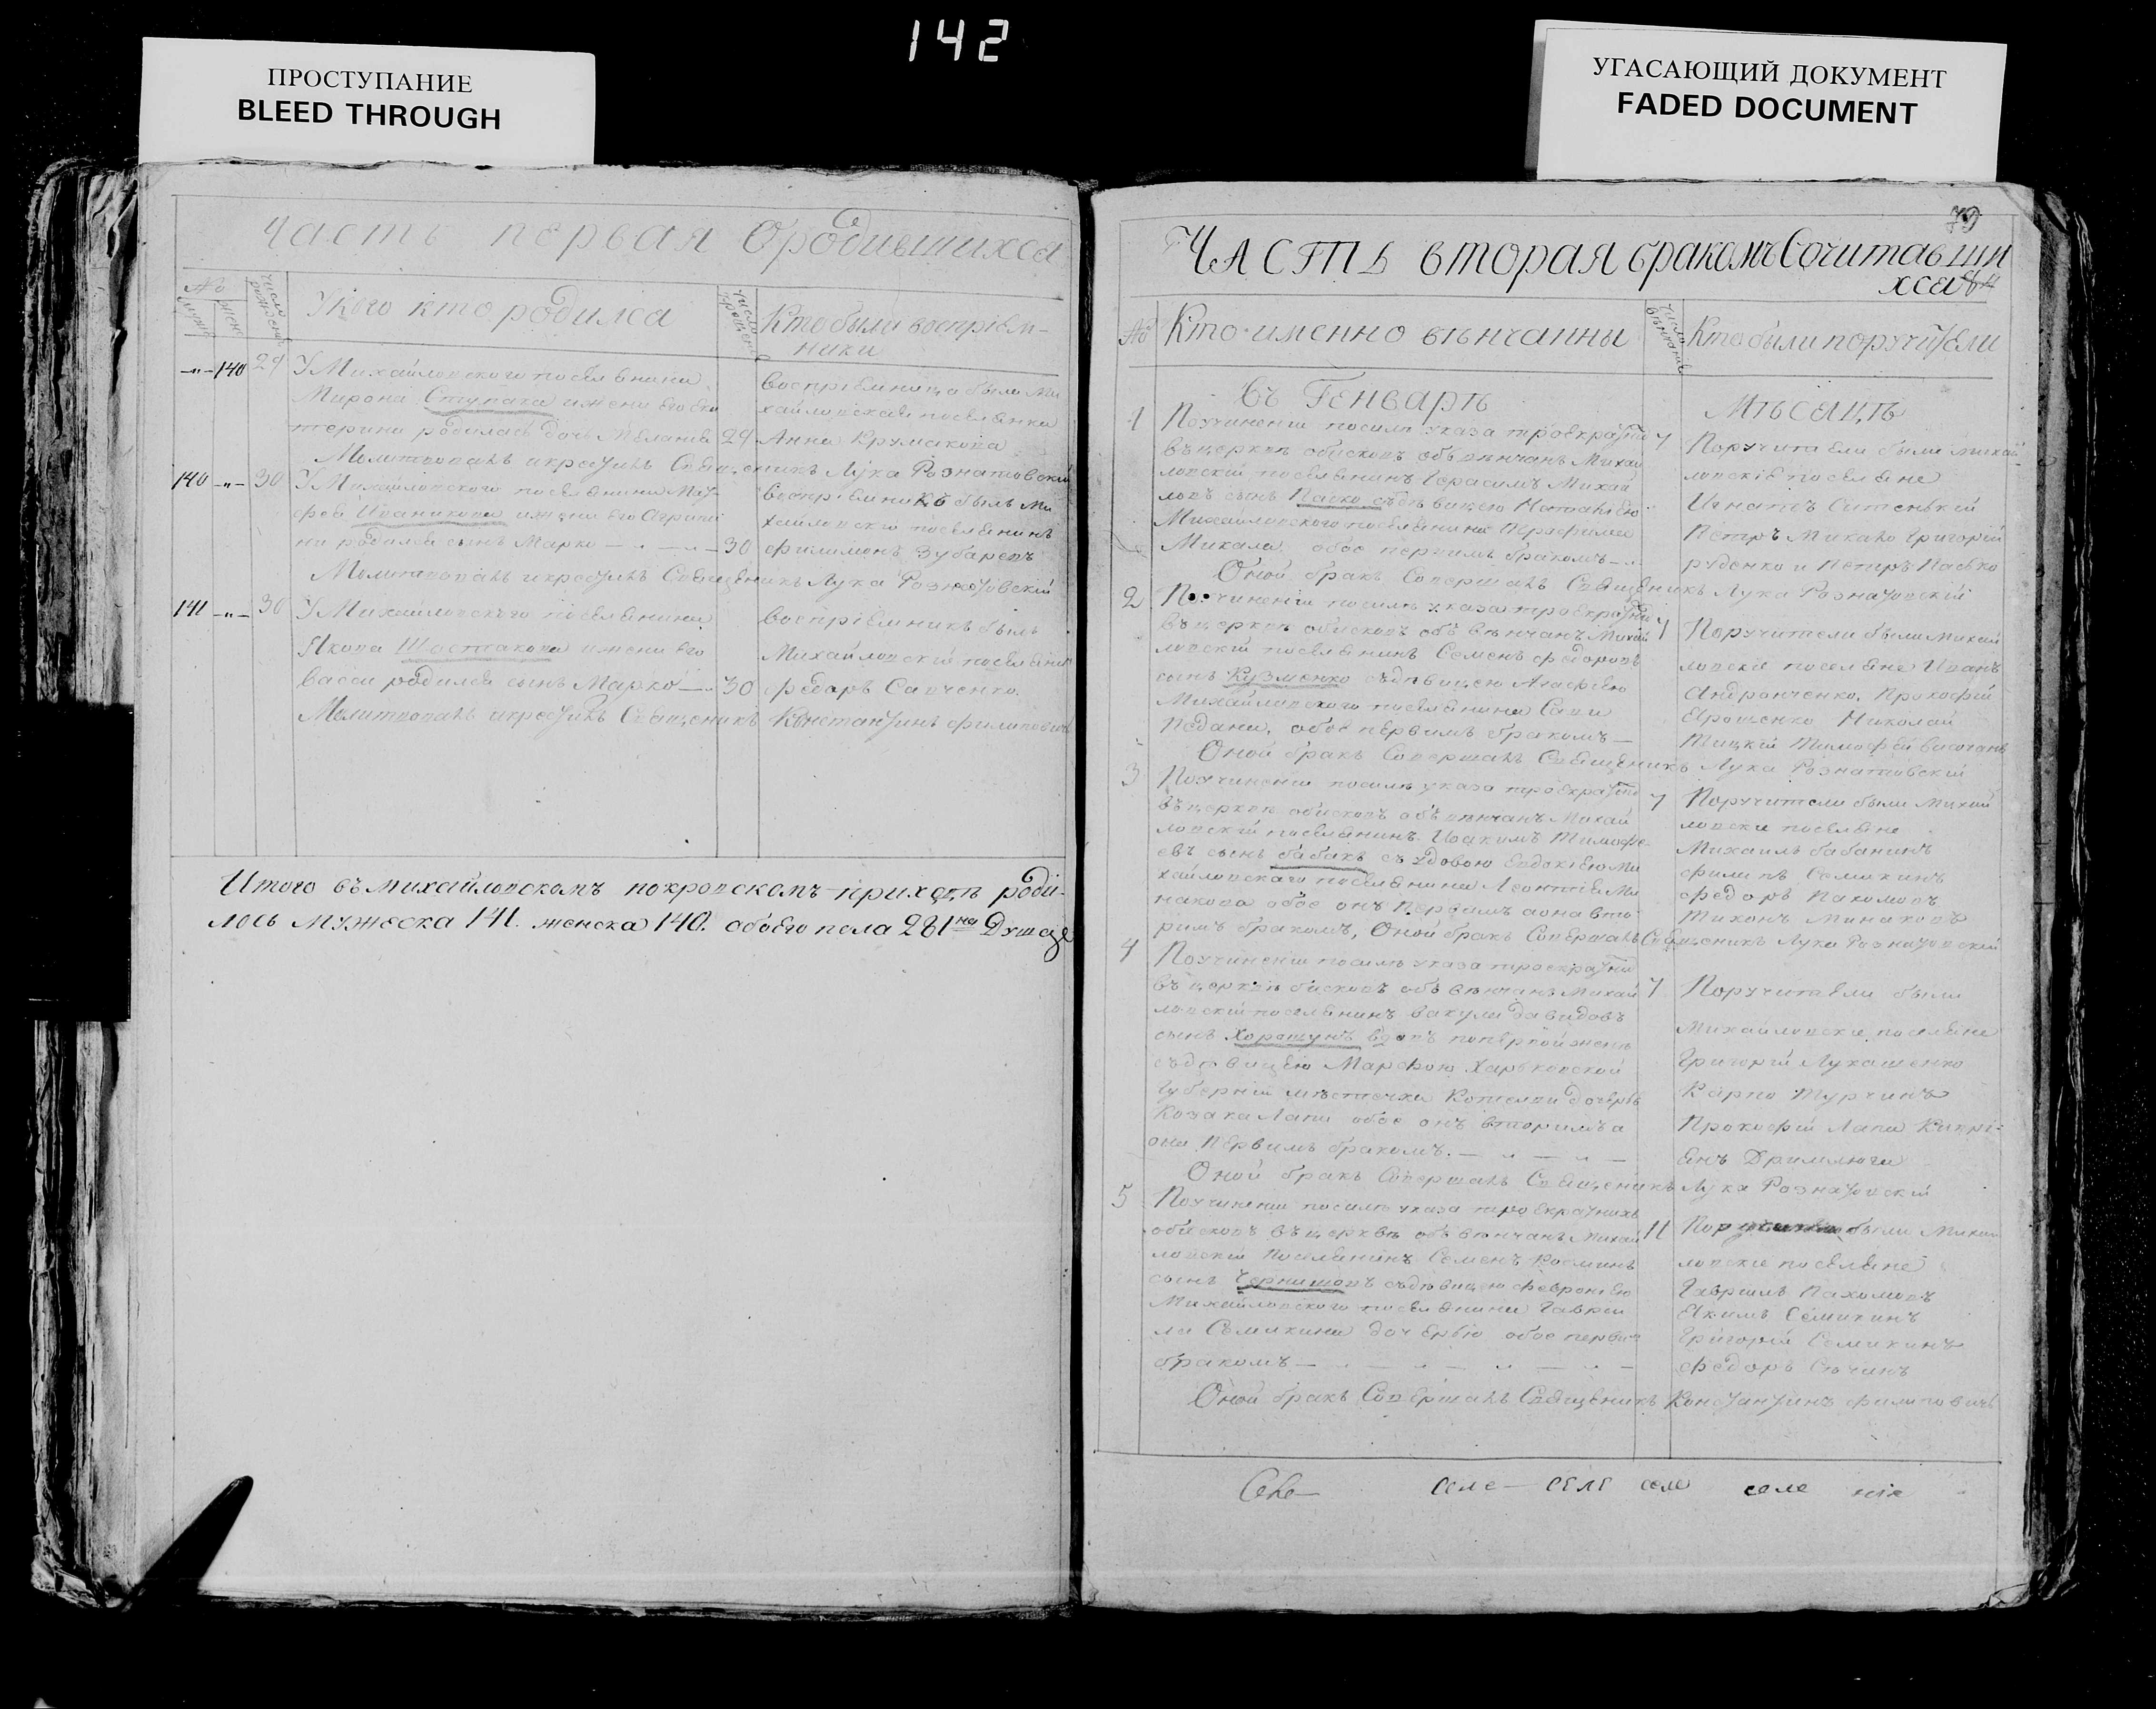 142
ПРОСТУПАНИЕ
BLEED THROUGH
УГАСАЮЩИЙ ДОКУМЕНТ
FADED DOCUMENT
Часть первая о родившихся
№
У кого кто родился
Кто были воспріем-
ники
140 29 У Михайловского поселянина
Мирона Ступака и жени его Ека
терини родилась дочь Меланія 29
Молитвовалъ и крестилъ Священникъ Лука Рознатовскій
воспріемница была Ми
хайловская поселянка
Анна Крумакова
140 30 У Михайловского поселянина Мат-
фея Иваникова и жени его Агрипи
ни родился сынъ Марко 30
Молитвовалъ и крестилъ Священникъ Лука Рознатовскій
воспріемникъ былъ Ми
хайловскій поселянинъ
Филимонъ Зубаревъ
141 30 У Михайловского поселянина
Якова Шостакова и жени его
Васси родился сынъ Марко 30
Молитвовалъ и крестилъ Священникъ Константинъ Филиповичъ
воспріемникъ былъ
Михайловскій поселянинъ
Федоръ Савченко
Итого въ Михайловскомъ покровскомъ приходѣ роди-
лось мужеска 141. женска 140. обоего пола 281на Душа
79
Часть вторая бракомъ Сочитавши
хся
№
Кто именно вѣнчанны
Кто были поручители
Въ Генварѣ
Мѣсяцѣ
1 По учиненіи посилѣ указа троекратни
въ церквѣ обисковъ обвѣнчанъ Михай
ловскій поселянинъ Герасимъ Михай
ловъ сынъ Пасько съ дѣвицею Наталіею
Михайловского поселянина
Микала обое первимъ бракомъ
Оной бракъ Совершалъ Священникъ Лука Рознатовскій
7 Поручители были Михай-
ловскіе поселяне
Игнатъ Ситенькій
Петръ Микало Григорій
Руденко и Петръ Пасько
2 По учиненіи посилѣ указа троекратни
въ церквѣ обисковъ обвѣнчанъ Михай
ловскій поселянинъ Семенъ Федоровъ
сынъ Кузменко съ дѣвицею Агафіею
Михайловского поселянина Сави
Педана, обое первимъ бракомъ
Оной бракъ Совершалъ Священникъ Лука Рознатовскій
7 Поручители были Михай
ловскіе поселяне Иванъ
Андрончênко, Прокофій
Ярошенко Николай
Тицкій Тимофей
3 По учиненіи посилѣ указа троекратни
въ церквѣ обисковъ обвѣнчанъ Михай
ловскій поселянинъ Иоакимъ Тимофе-
евъ сынъ Бабакъ съ удовою Евдокіею Ми
хайловского поселянина Леонтія Ми
накова обое онъ первимъ а она вто-
римъ бракомъ, Оной бракъ Совершалъ Священникъ Лука Рознатовскій
7 Поручители были Михай
ловскіе поселяне
Михаилъ Бабанинъ
Филипъ Семикинъ
Федоръ Пахомовъ
Тихонъ Минаковъ
4 По учиненіи посилѣ указа троекратни
въ церквѣ обисковъ обвѣнчанъ Михай
ловскій поселянинъ Вакула Давидовъ
сынъ Хорошунъ вдовъ по первой женѣ
съ дѣвицею Марфою Харьковской
Губерніи мѣстечка Котелви дочерью
Козака Лапи обое онъ вторимъ а
она первимъ бракомъ.
Оной бракъ Совершалъ Священникъ Лука Рознатовскій
7 Поручители были
Михайловскіе поселяне
Григорій Лукашенко
Карпо Турчинъ
Прокофій Лапа Кипрі-
янъ Дримлюга
5 По учиненіи посилѣ указа троекратнихъ
обисковъ въ церквѣ обвѣнчанъ Михай
ловскій Поселянинъ Семенъ Косминъ
сынъ Чернишовъ съ дѣвицею Февроніею
Михайловского поселянина Гаври
ла Семикина дочерью обое первим
бракомъ
Оной бракъ Совершалъ Священникъ Константинъ Филиповичъ
11 Поручители были Михай
ловскіе поселяне
Гавриилъ Пахомовъ
Якимъ Семикинъ
Григорій Семикинъ
Федоръ Сѣчинъ
селе селе селе селе